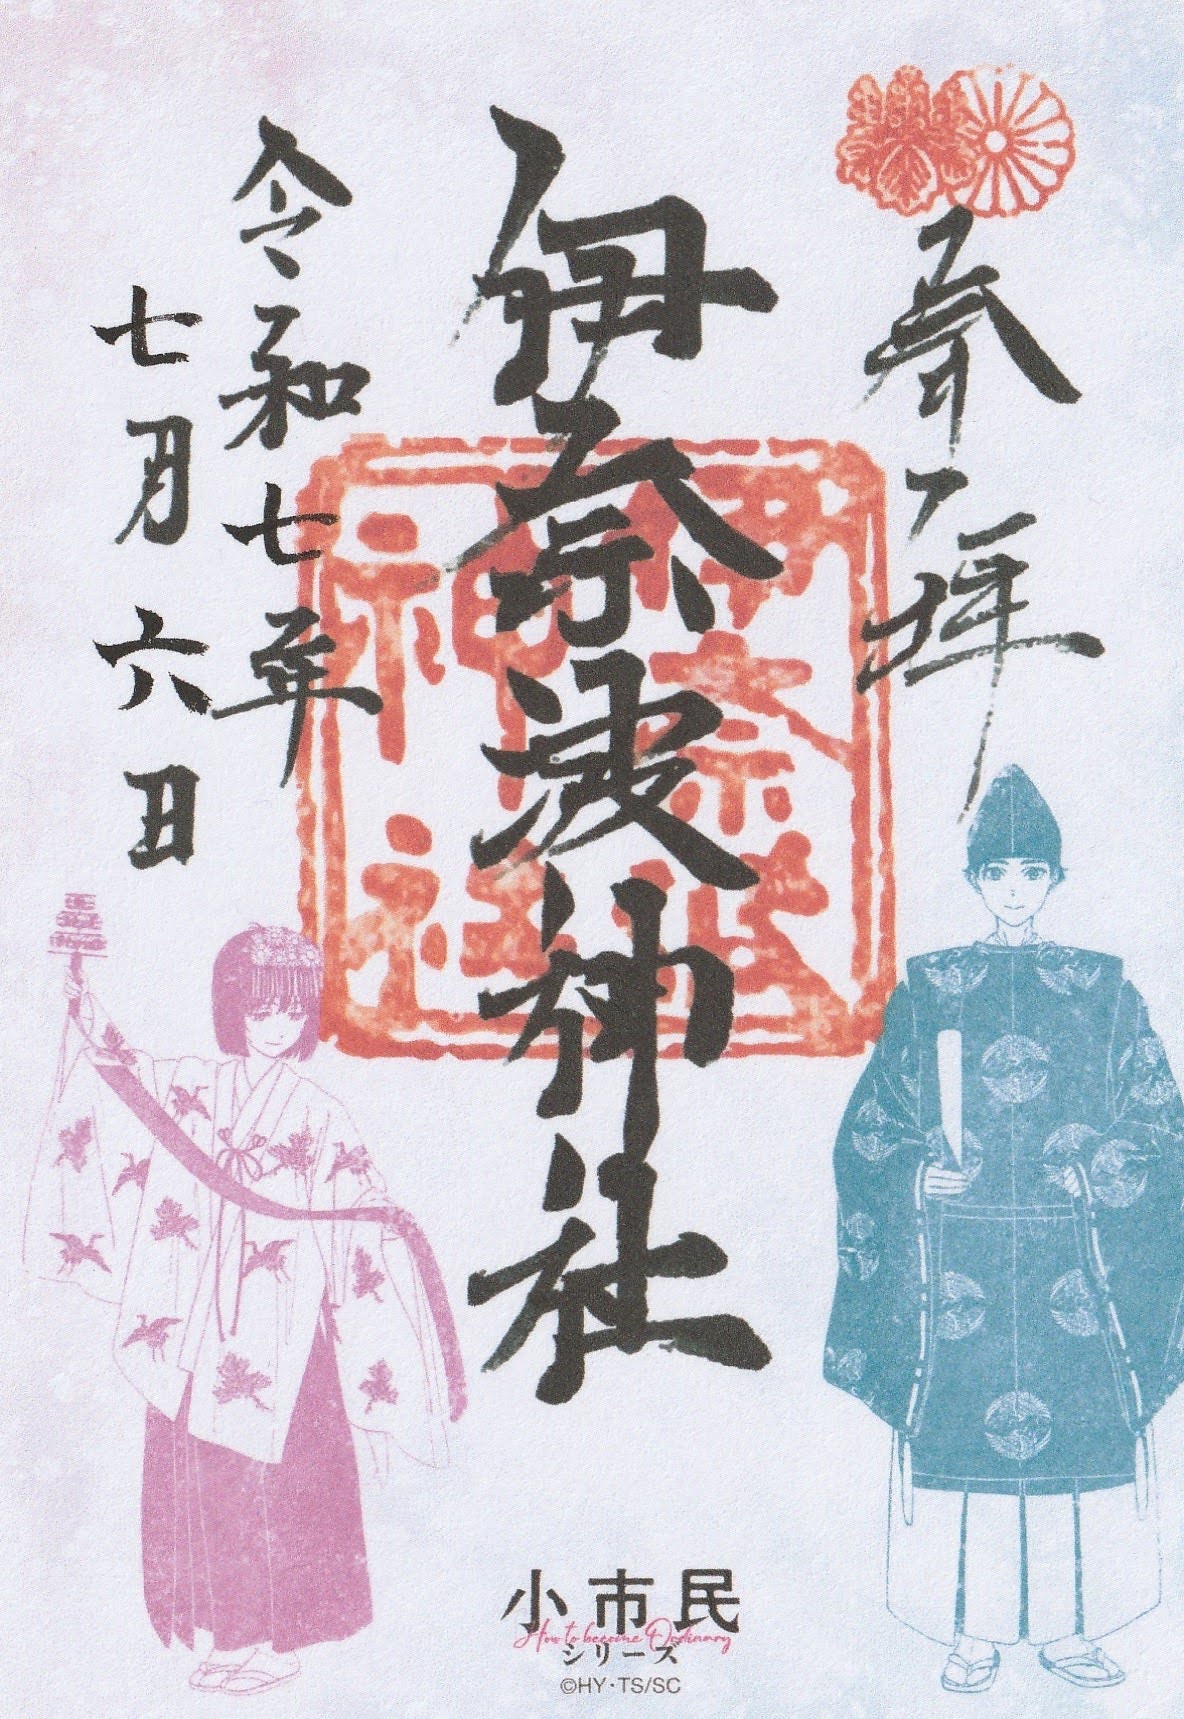 奉拝
伊奈波神社
伊奈波
神社
令和七年
七月六日
小市民
How to become Ordinary
シリーズ
©HY・TS/SC